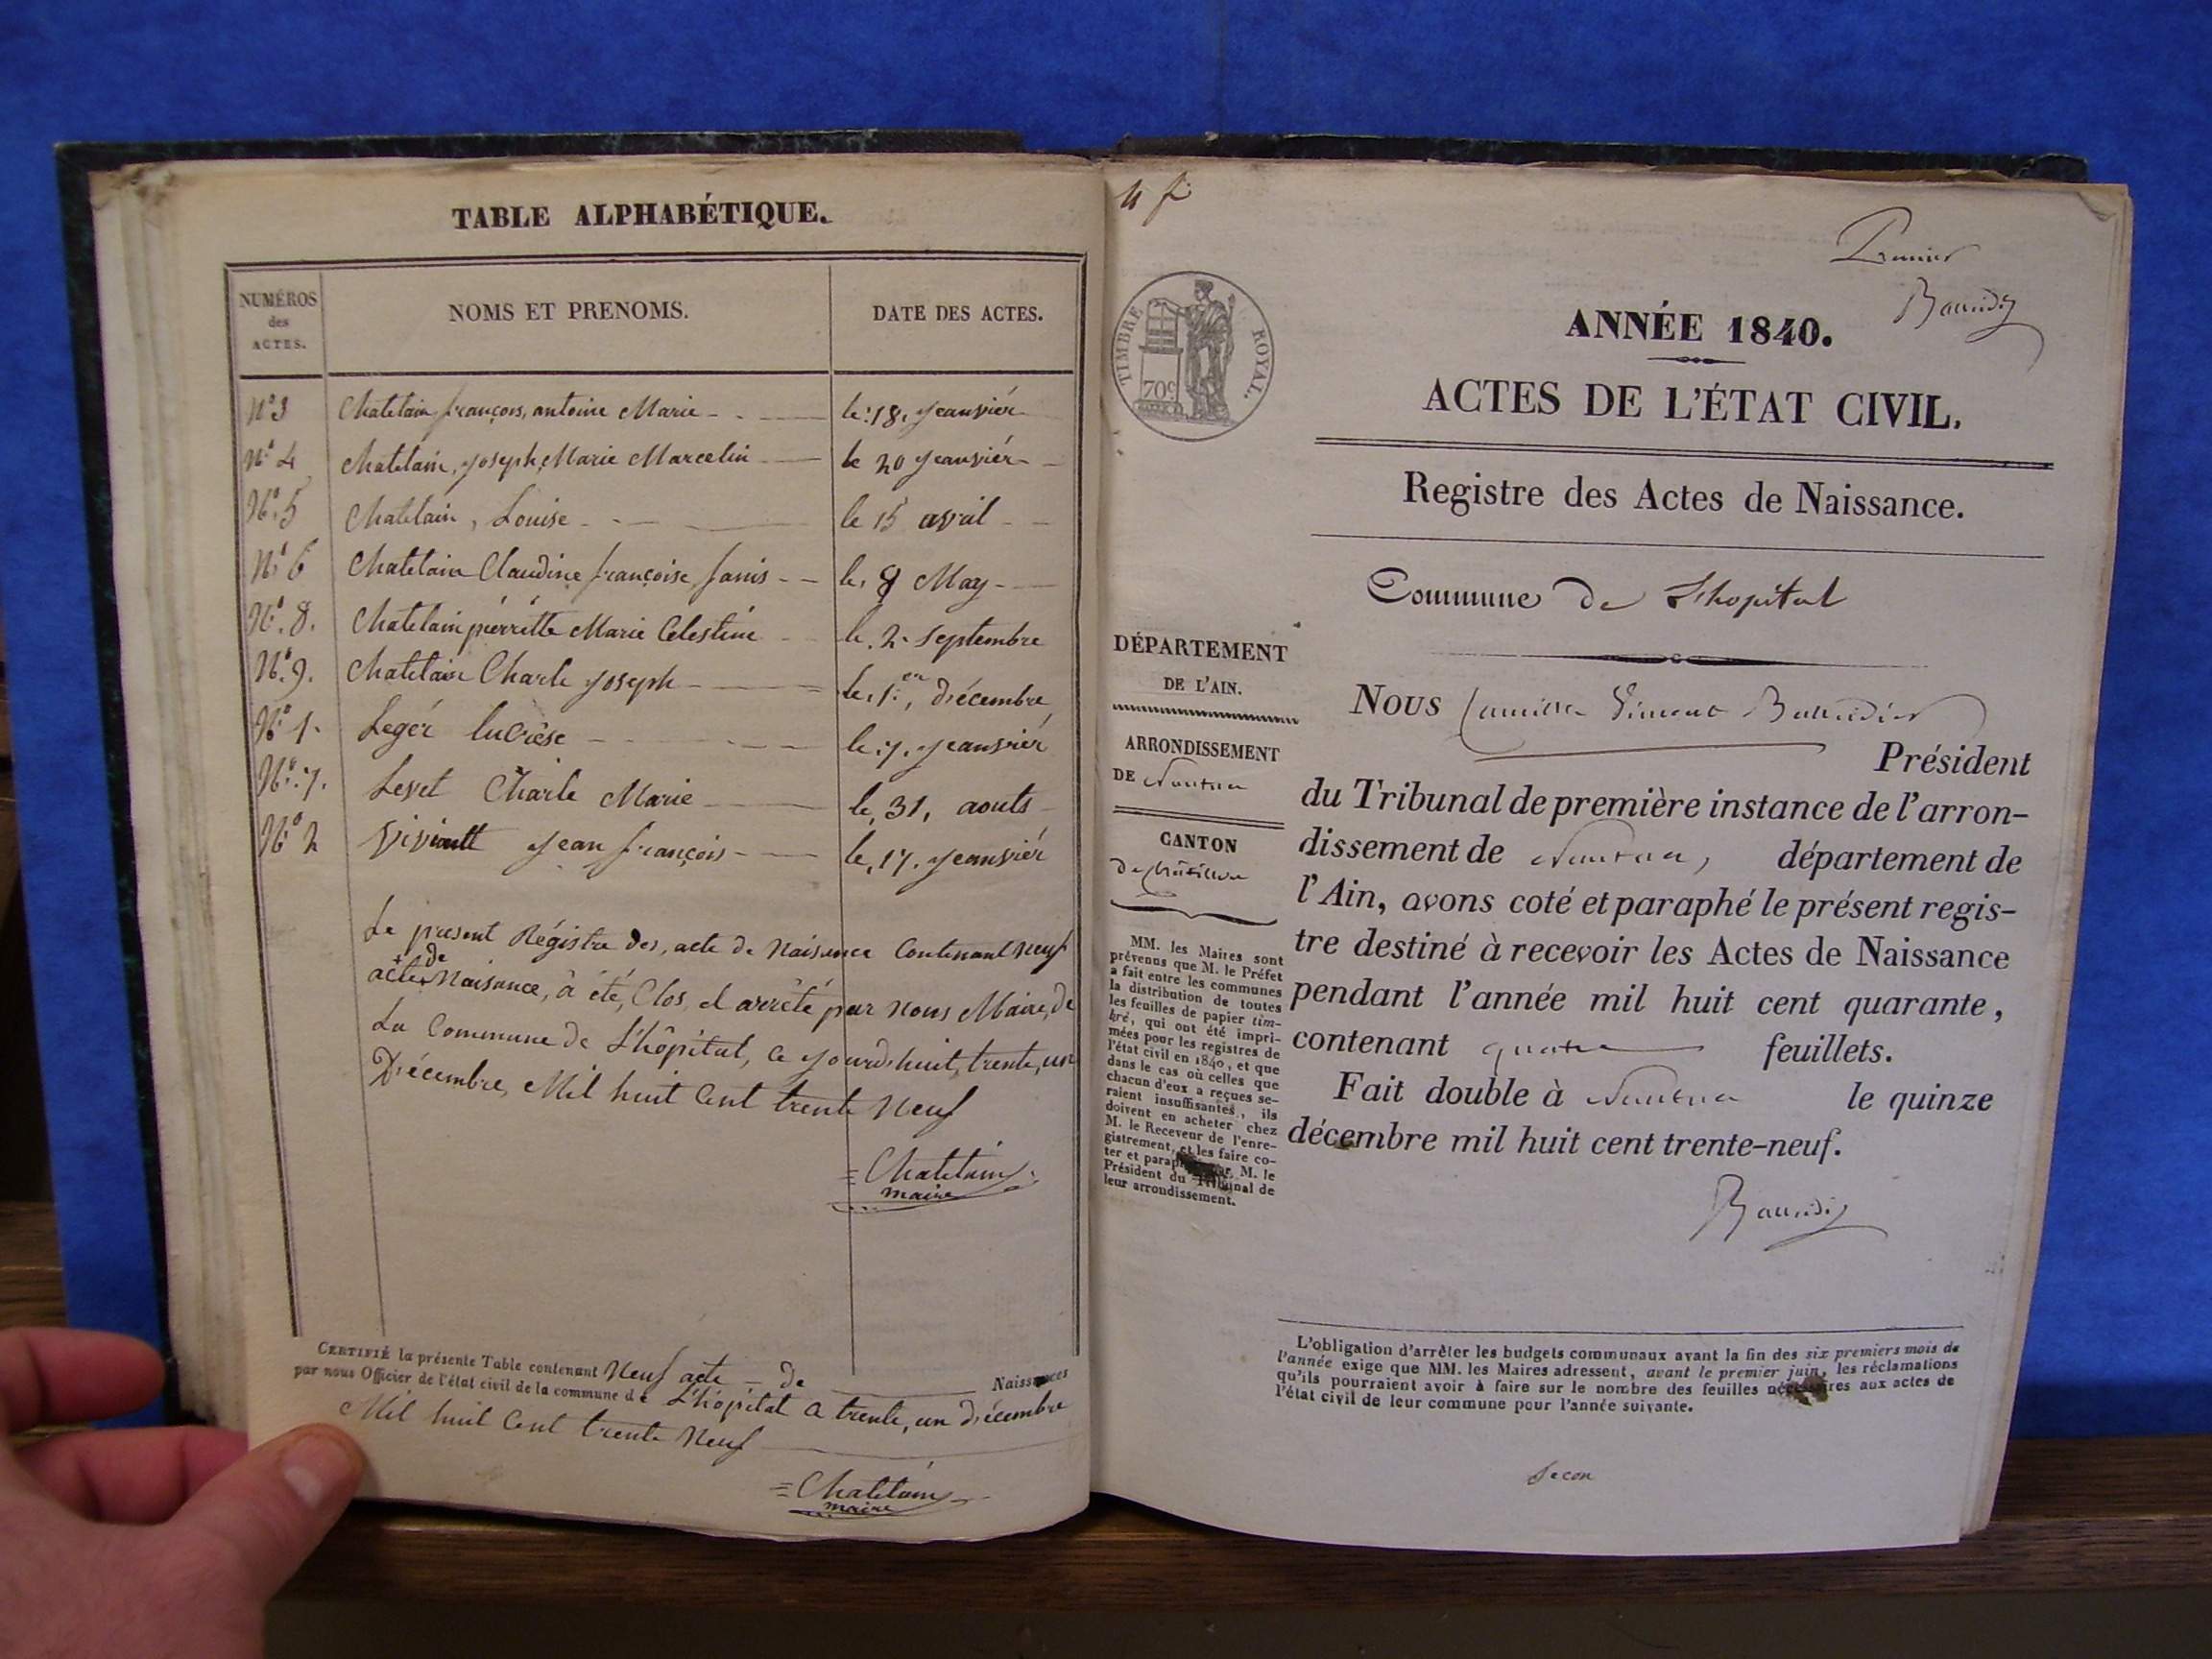 TABLE ALPHABÉTIQUE.
NUMÉROS
des
ACTES.
NOMS ET PRENOMS.
DATE DES ACTES.
N° 3 Chatelain françois, antoine Marie le 18. Jeanviér
N° 4 Chatelain, Joseph, Marie Marcelin le 20 Jeanviér
N° 5 Chatelain, Louise le 15 avril
N° 6 Chatelain Claudine françoise fanis le, 8 May
N° 8. Chatelain piérrétte Marie Celestine le. 2. Septembre
N° 9. Chatelain Charle Joseph le, 1er, Décembre
N° 1. Legér lucrèse le 7. Jeanviér
N° 7. Levet Charle Marie le, 31, aouts
N° 2 Jean françois le, 17. Jeanviér
Le present Régistre des, acte de Naisance Contenant Neuf
acte de Naisance, à été, Clos, et arrêté par Nous Maire, de
La Commune de L'hôpital, Ce Jourdshuit, trente, un
Décembre, Mil huit Cent trente Neuf
= Chatelain
maire
CERTIFIÉ la présente Table contenant Neuf acte de Naissances
par nous Officier de l'état civil de la commune de L'hôpital a trente, un Décembre
Mil huit Cent trente Neuf
= Chatelain
maire
4 f
Premier
TIMBRE ROYAL.
70c
ANNÉE 1840.
ACTES DE L'ÉTAT CIVIL.
Registre des Actes de Naissance.
Commune de L'hopital
DÉPARTEMENT
DE L'AIN.
ARRONDISSEMENT
DE Nantua
CANTON
De Châtillon
MM. les Maires sont
prévenus que M. le Préfet
a fait entre les communes
la distribution de toutes
les feuilles de papier tim-
bré, qui ont été impri-
mées pour les registres de
l'état civil en 1840, et que
dans le cas où celles que
chacun d'eux a reçues se-
raient insuffisantes, ils
doivent en acheter chez
M. le Receveur de l'enre-
gistrement, et les faire co-
ter et parapher par M. le
Président du Tribunal de
leur arrondissement.
Nous Camille Vincent
Président
du Tribunal de première instance de l'arron-
dissement de Nantua, département de
l'Ain, avons coté et paraphé le présent regis-
tre destiné à recevoir les Actes de Naissance
pendant l'année mil huit cent quarante,
contenant quatre feuillets.
Fait double à Nantua le quinze
décembre mil huit cent trente-neuf.
L'obligation d'arrêter les budgets communaux avant la fin des six premiers mois de
l'année exige que MM. les Maires adressent, avant le premier juin, les réclamations
qu'ils pourraient avoir à faire sur le nombre des feuilles nécessaires aux actes de
l'état civil de leur commune pour l'année suivante.